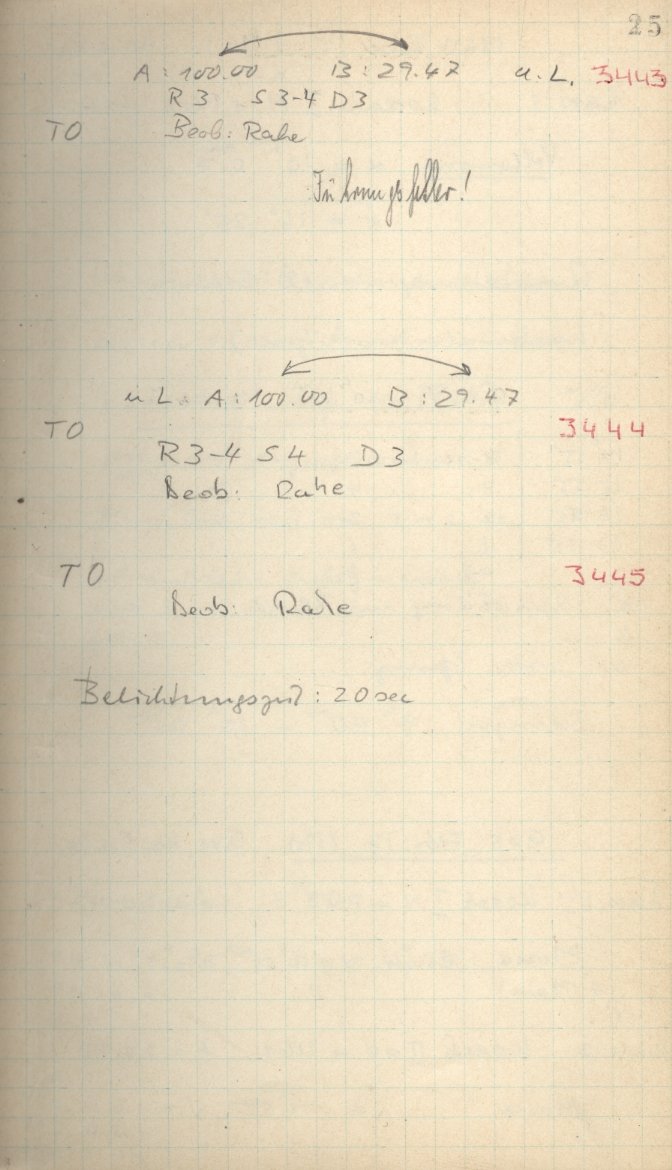 25
A : 100.00 B : 29.47 u. L. 3443
R 3 S 3-4 D 3
TO Beob: Rahe
Führungsfehler!
u L. A : 100.00 B : 29.47
TO 3444
R 3-4 S 4 D 3
Beob: Rahe
TO 3445
Beob: Rahe
Belichtungszeit : 20 sec